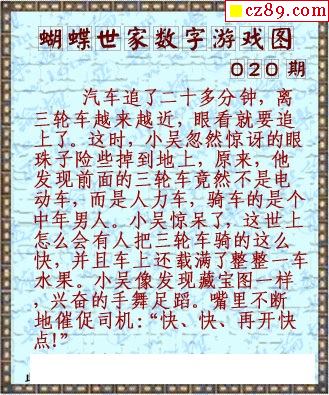 cz89.com
蝴蝶世家数字游戏图
020 期
汽车追了二十多分钟，离
三轮车越来越近，眼看就要追
上了。这时，小吴忽然惊讶的眼
珠子险些掉到地上，原来，他
发现前面的三轮车竟然不是电
动车，而是人力车，骑车的是个
中年男人。小吴惊呆了，这世上
怎么会有人把三轮车骑的这么
快，并且车上还载满了整整一车
水果。小吴像发现藏宝图一样
，兴奋的手舞足蹈。嘴里不断
地催促司机：“快、快、再开快
点！”